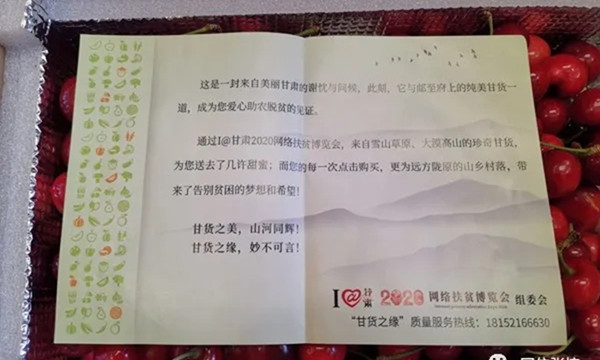 这是一封来自美丽甘肃的谢忱与问候，此刻，它与邮至府上的纯美甘货一
道，成为您爱心助农脱贫的见证。
通过I@甘肃2020网络扶贫博览会，来自雪山草原、大漠高山的珍奇甘货，
为您送去了几许甜蜜；而您的每一次点击购买，更为远方陇原的山乡村落，带
来了告别贫困的梦想和希望！
甘货之美，山河同辉！
甘货之缘，妙不可言！
I@甘肃 2020 网络扶贫博览会 组委会
“甘货之缘”质量服务热线：18152166630